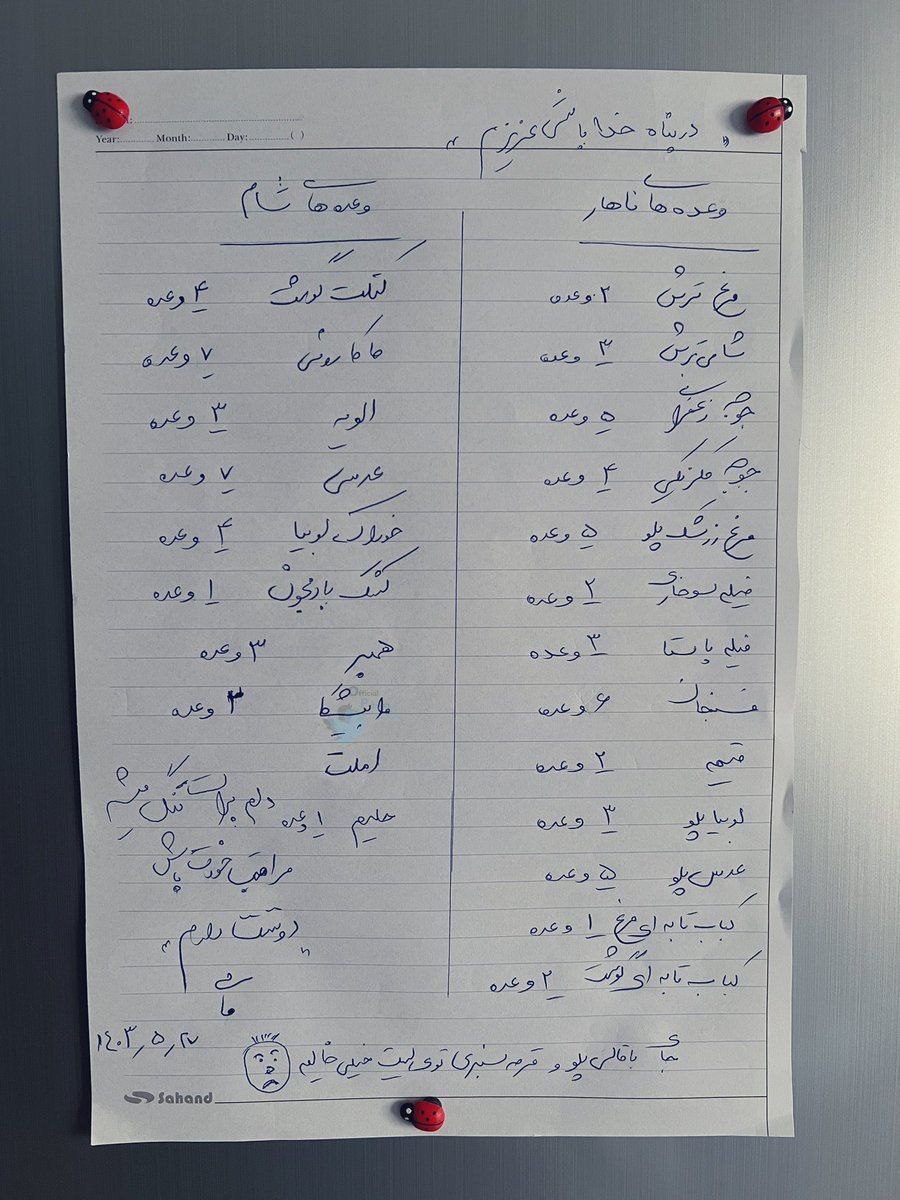 Year:............ Month:............ Day:............ ( )
"در پناه خدا باشی عزیزم"
وعده های ناهار
مرغ ترش ۲ وعده
شامی ترش ۳ وعده
جوجه زعفرانی ۵ وعده
جوجه مکزیکی ۴ وعده
مرغ زرشک پلو ۵ وعده
فیله سوخاری ۲ وعده
فیله پاستا ۳ وعده
فسنجان ۶ وعده
قیمه ۲ وعده
لوبیا پلو ۳ وعده
عدس پلو ۵ وعده
کباب تابه ای مرغ ۱ وعده
کباب تابه ای گوشت ۲ وعده
وعده های شام
کتلت گوشت ۴ وعده
ماکارونی ۷ وعده
الویه ۳ وعده
عدسی ۷ وعده
خوراک لوبیا ۴ وعده
کشک بادمجون ۱ وعده
همبر ۳ وعده
وعده
املت
حلیم ۱ وعده
دلم برات تنگ میشه
مراقب خودت باش
"دوستت دارم"
جای باقالی پلو و قرمه سبزی توی لیست خیلی خالیه
۱۴۰۳٫۵٫۲۷
Sahand